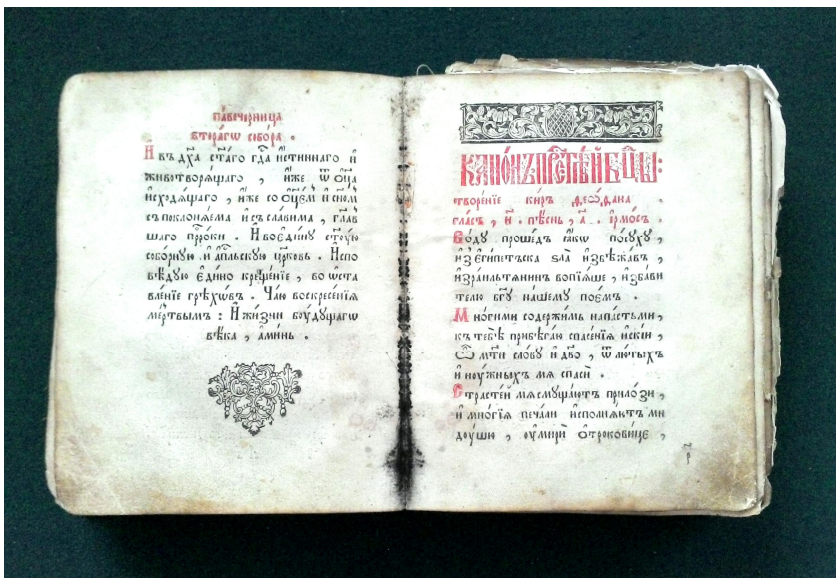 па́вечерница
втора́гѡ собо́ра .
И҆ въ дх҃а ст҃а́го гд҇а и҆́стиннаго и҆
животворѧ́щаго , и҆́же ѿ ѻ҆ц҃а
и҆сходѧ́щаго , и҆́же со ѻ҆ц҃е́мъ и҆ сн҃омъ
съпоклонѧ́ема и҆ съсла́вима , гл҃ав
шаго прⷪ҇ро́ки . И҆ во є҆ди́ну ст҃ую
собо́рную и҆ а҆пⷭ҇льскую цр҃ковь . И҆спо
вѣ́дую є҆ди́но кр҃ще́нїе , во ѡ҆ста
вле́нїе грѣхѡ́въ . Ча́ю воскресе́нїѧ
ме́ртвымъ : И҆ жи́зни бꙋ́дꙋщагѡ
вѣ́ка , а҆ми́нь .
КАНО́НЪ ПРЕСТ҃Ѣ́Й БЦ҃Ы :
творе́нїе кѵръ ѳеѡ́дана .
гла́съ , и҃ . пѣ́снь , а҃ . і҆рмо́съ .
Во́ду проше́дъ ꙗ҆́кѡ по́суху ,
и҆з̾ є҆гі́петска ѕла̀ и҆збѣжа́въ ,
и҆зра́ильтѧнинъ вопїѧ́ше , и҆зба́ви
телю бг҃у на́шему пое́мъ .
Мно́гими содержи́мь напа́стьми ,
къ тебѣ̀ прибѣга́ю спасе́нїѧ и҆скїи ,
Ѽ мт҃и сло́ву и҆ дв҃о , ѿ лю́тыхъ
и҆ ну́жныхъ мѧ спасѝ .
Страсте́й мѧ смуща́ютъ прило́зи ,
и҆ мно́гїѧ печа́ли и҆сполнѧ́ютъ ми
до́ушю , ᲂу҆мирѝ ѻ҆трокови́це ,